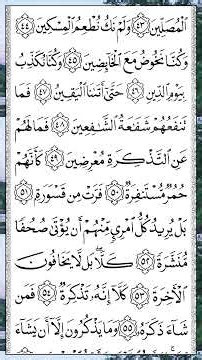 ٱلۡمُصَلِّينَ ٤٣ وَلَمۡ نَكُ نُطۡعِمُ ٱلۡمِسۡكِينَ ٤٤
وَكُنَّا نَخُوضُ مَعَ ٱلۡخَآئِضِينَ ٤٥ وَكُنَّا نُكَذِّبُ
بِيَوۡمِ ٱلدِّينِ ٤٦ حَتَّىٰٓ أَتَىٰنَا ٱلۡيَقِينُ ٤٧ فَمَا
تَنفَعُهُمۡ شَفَٰعَةُ ٱلشَّٰفِعِينَ ٤٨ فَمَا لَهُمۡ
عَنِ ٱلتَّذۡكِرَةِ مُعۡرِضِينَ ٤٩ كَأَنَّهُمۡ
حُمُرٞ مُّسۡتَنفِرَةٞ ٥٠ فَرَّتۡ مِن قَسۡوَرَةِۭ ٥١
بَلۡ يُرِيدُ كُلُّ ٱمۡرِيٕٖ مِّنۡهُمۡ أَن يُؤۡتَىٰ صُحُفٗا
مُّنَشَّرَةٗ ٥٢ كَلَّاۖ بَل لَّا يَخَافُونَ
ٱلۡأٓخِرَةَ ٥٣ كَلَّآ إِنَّهُۥ تَذۡكِرَةٞ ٥٤ فَمَن
شَآءَ ذَكَرَهُۥ ٥٥ وَمَا يَذۡكُرُونَ إِلَّآ أَن يَشَآءَ